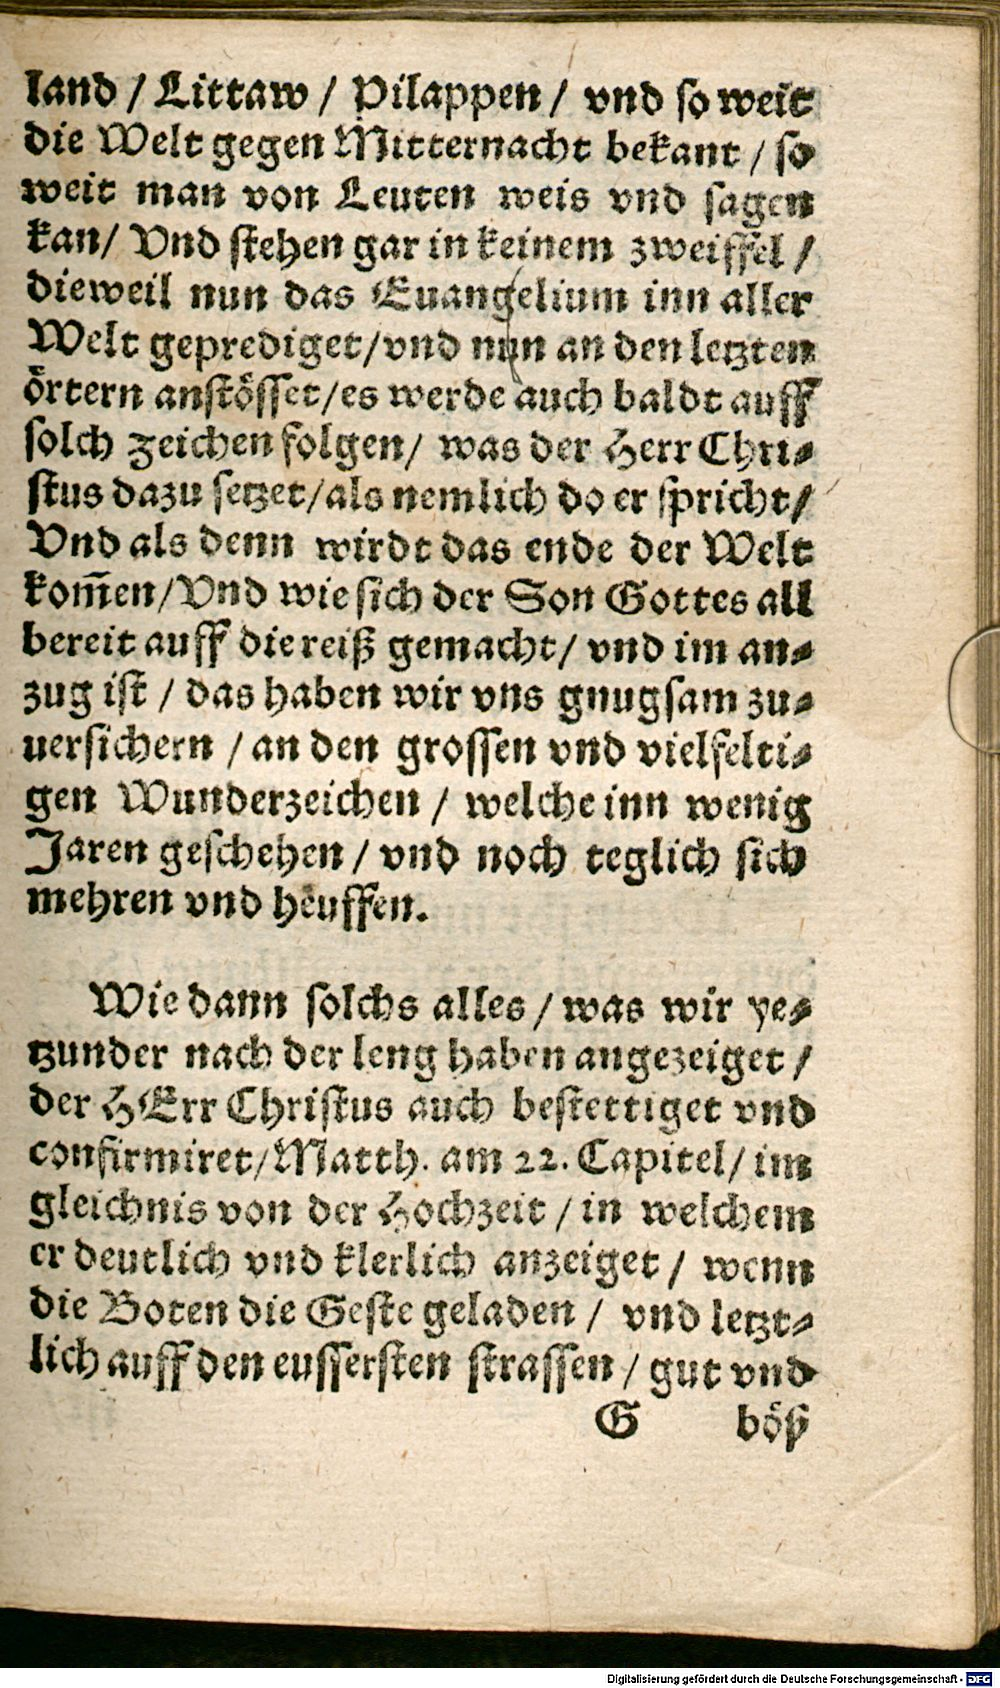 land / Littaw / Pilappen / vnd so weit
die Welt gegen Mitternacht bekant / so
weit man von Leuten weis vnd sagen
kan / Vnd stehen gar in keinem zweiffel /
dieweil nun das Euangelium inn aller
Welt geprediget / vnd nun an den letzten
örtern anstösset / es werde auch baldt auff
solch zeichen folgen / was der Herr Chri-
stus dazu setzet / als nemlich do er spricht /
Vnd als denn wirdt das ende der Welt
kom̃en / Vnd wie sich der Son Gottes all
bereit auff die reiß gemacht / vnd im an-
zug ist / das haben wir vns gnugsam zu-
uersichern / an den grossen vnd vielfelti-
gen Wunderzeichen / welche inn wenig
Jaren geschehen / vnd noch teglich sich
mehren vnd heuffen.
Wie dann solchs alles / was wir ye-
tzunder nach der leng haben angezeiget /
der HErr Christus auch bestettiget vnd
confirmiret / Matth. am 22. Capitel / im
gleichnis von der Hochzeit / in welchem
er deutlich vnd klerlich anzeiget / wenn
die Boten die Geste geladen / vnd letzt-
lich auff den eussersten strassen / gut vnd
G böß
Digitalisierung gefördert durch die Deutsche Forschungsgemeinschaft - DFG